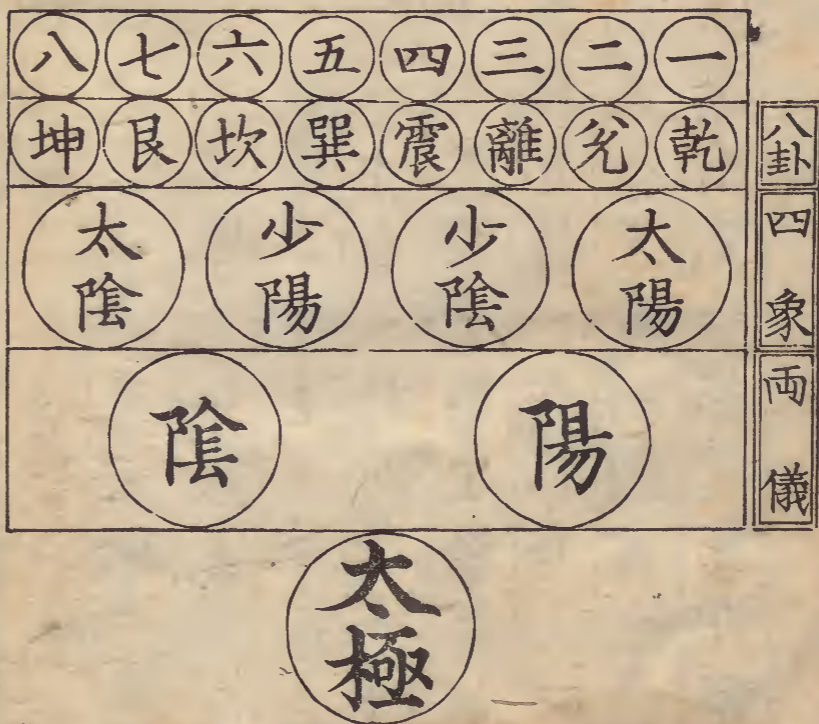 一 二 三 四 五 六 七 八
八卦
乾 兌 離 震 巽 坎 艮 坤
四象
太陽 少陰 少陽 太陰
両儀
陽 陰
太極